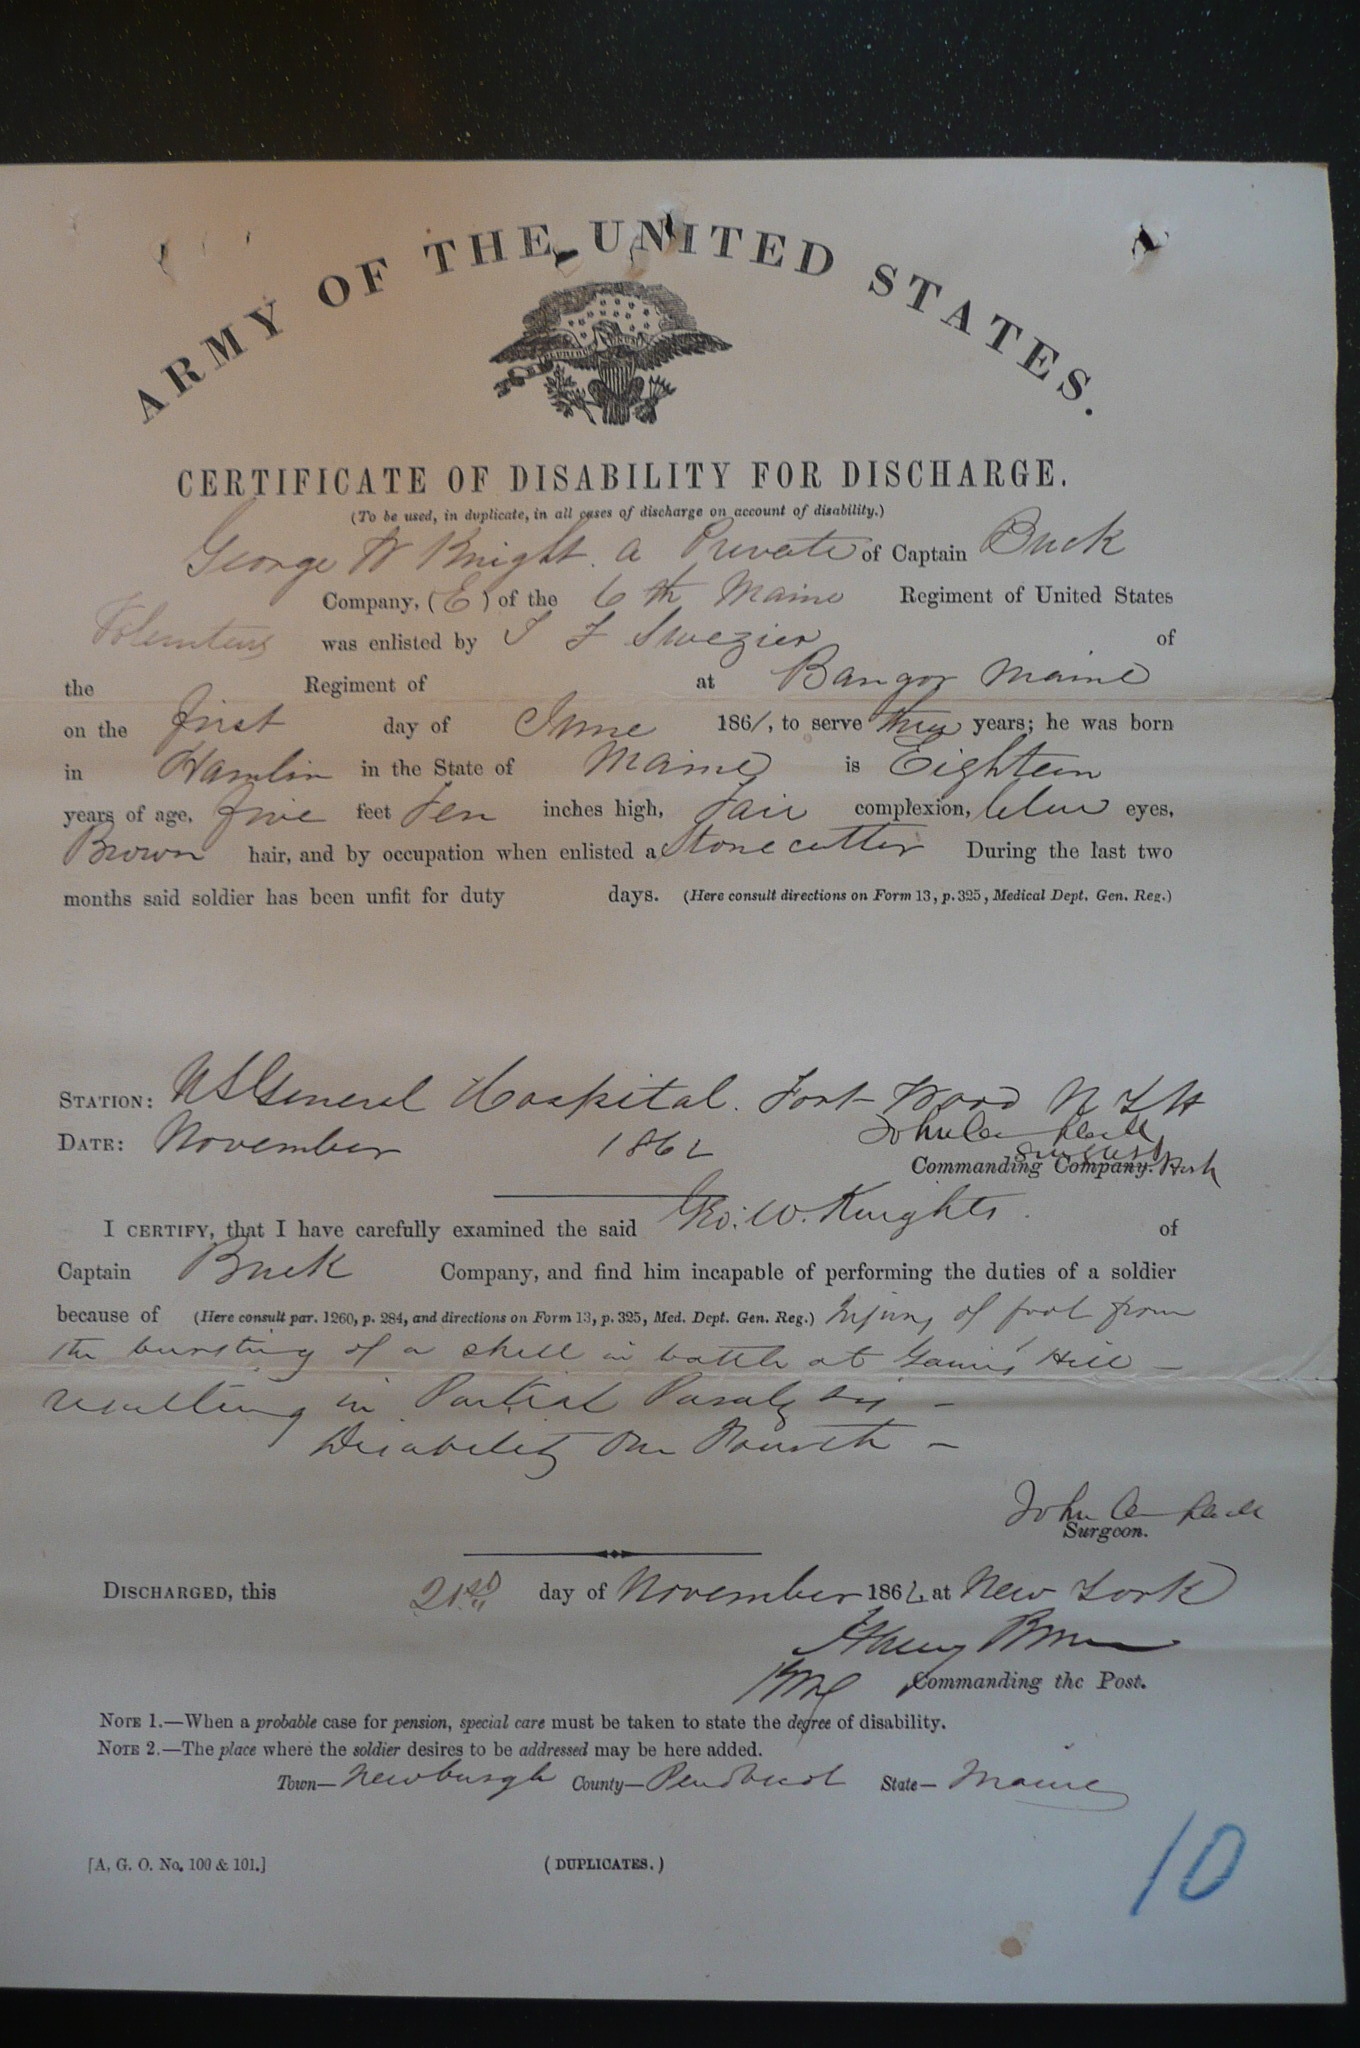 ARMY OF THE UNITED STATES.
CERTIFICATE OF DISABILITY FOR DISCHARGE.
(To be used, in duplicate, in all cases of discharge on account of disability.)
George W Knight. a Private of Captain Buck
Company, (E) of the 6th Maine Regiment of United States
Volunteers was enlisted by of
the Regiment of at Bangor Maine
on the first day of June 1861, to serve three years; he was born
in Hamlin in the State of Maine is Eighteen
years of age, five feet Ten inches high, Fair complexion, blue eyes,
Brown hair, and by occupation when enlisted a Stone cutter During the last two
months said soldier has been unfit for duty days. (Here consult directions on Form 13, p. 325, Medical Dept. Gen. Reg.)
STATION: US General Hospital. Fort Wood N Y H
DATE: November 1862 John
Surgeon
Commanding Company.
I CERTIFY, that I have carefully examined the said Geo: W. Knights. of
Captain Buck Company, and find him incapable of performing the duties of a soldier
because of (Here consult par. 1260, p. 284, and directions on Form 13, p. 325, Med. Dept. Gen. Reg.) Injury of foot from
the bursting of a shell in battle at Gaines' Hill —
resulting in Partial Paralysis —
Disability One Fourth —
John
Surgeon.
DISCHARGED, this 21st day of November 1862, at New York
Harvey Brown
Commanding the Post.
NOTE 1.—When a probable case for pension, special care must be taken to state the degree of disability.
NOTE 2.—The place where the soldier desires to be addressed may be here added.
Town—Newburgh County—Penobscot State—Maine
[A. G. O. No. 100 & 101.] (DUPLICATES.)
10